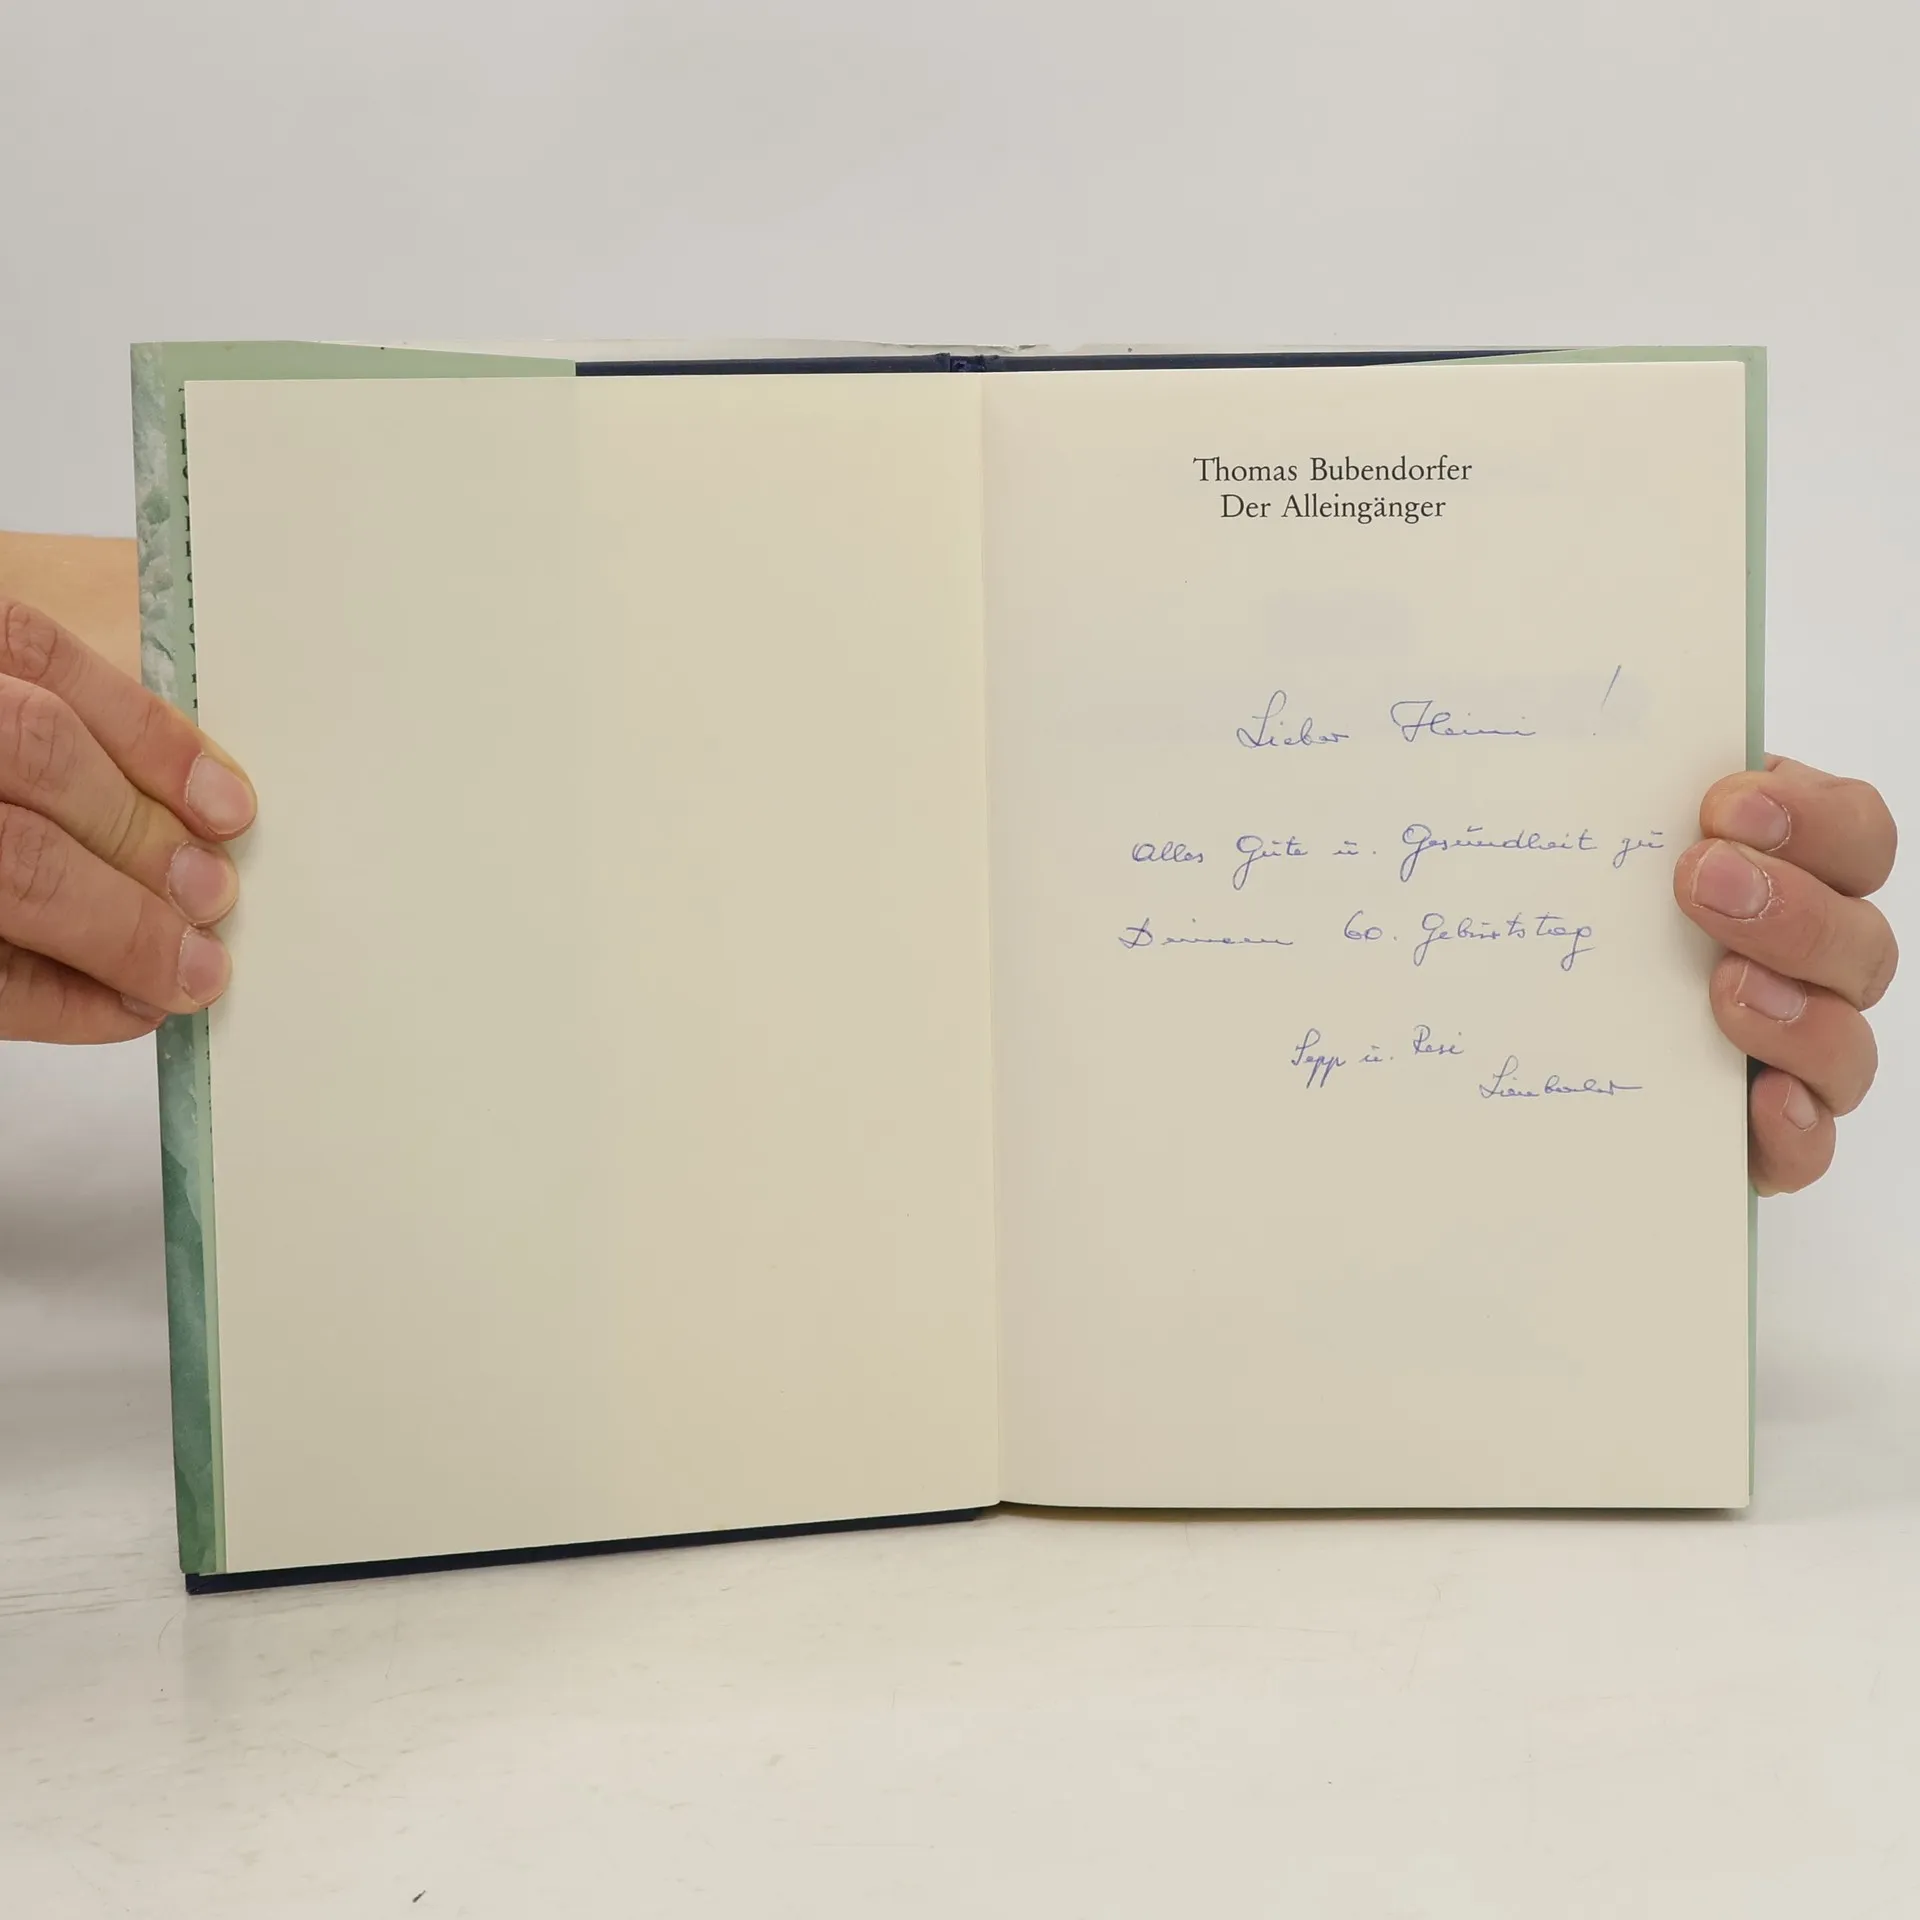 Thomas Bubendorfer
Der Alleingänger
Lieber Heini !
Alles Gute u. Gesundheit zu
Deinem 60. Geburtstag
Sepp u. Resi